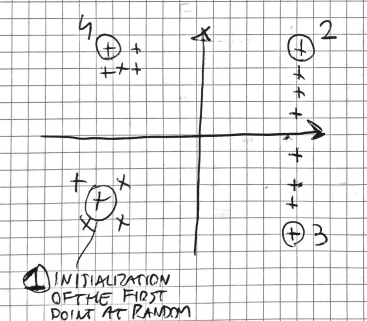 4
2
3
1 INITIALIZATION
OF THE FIRST
POINT AT RANDOM